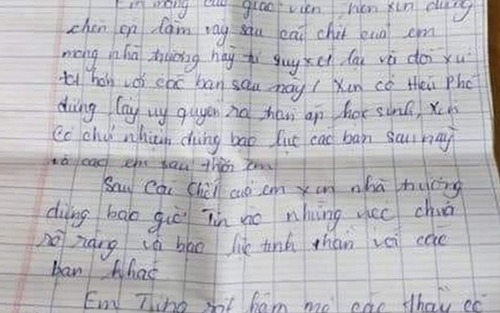 Em mong các giáo viên, nên xin đừng
chèn ép làm vậy sau cái chết của em
mong nhà trường hãy tự suy xét lại và đối xử
tốt hơn với các bạn sau này! Xin cô Hiệu Phó
đừng lấy uy quyền ra đàn áp học sinh, xin
cô chủ nhiệm đừng bạo lực các bạn sau này
và các em sau thời em
Sau cái chết của em xin nhà trường
đừng bao giờ Tin vào những việc chưa
rõ ràng và bạo lực tinh thần với các
bạn khác
Em Từng rất hâm mộ các thầy cô